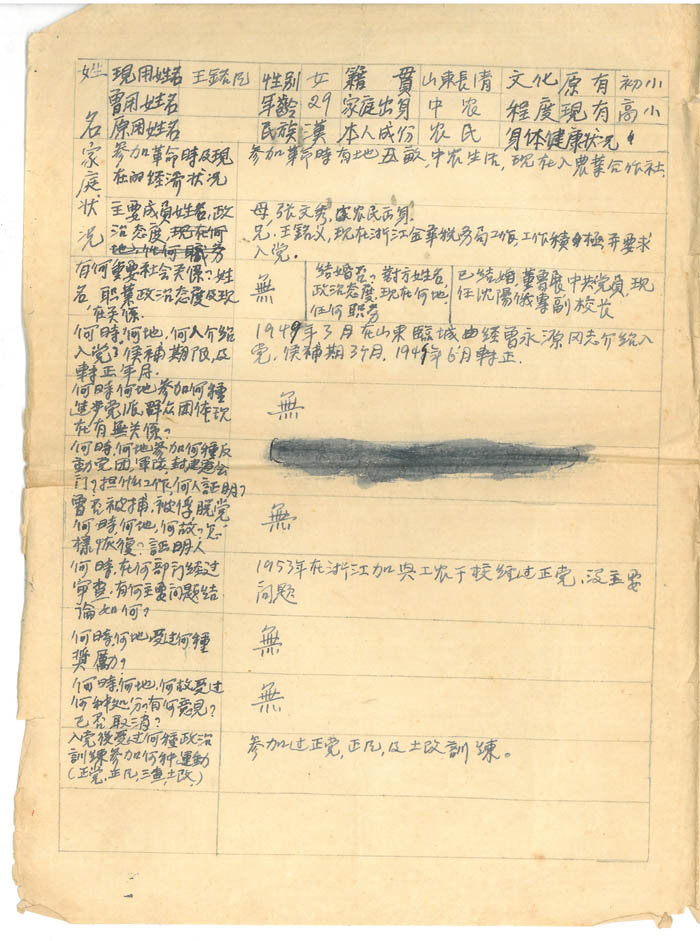 姓名 現用姓名 王銘凡 性别 女 籍貫 山東長清 文化 原有 初小
曾用姓名 年齡 29 家庭出身 中农 程度 現有 高小
原用姓名 民族 漢 本人成份 农民 身体健康状况
家庭状况 参加革命時及現
在的经济状况
参加革命時有地五畝,中农生活,現在入農業合作社.
主要成員姓名,政
治态度,現在何
地立作何職务
母.張文秀,农民出身.
兄.王銘义,現在浙江金華税务局工作,工作積極,并要求
入党.
有何重要社会关係?姓
名 职業政治态度及現
在关係.
無
結婚否?对方姓名,
政治态度,現在何地,
任何職务
已経結婚,董曾展中共党員,現
任沈陽俄專副校长
何時,何地,何人介绍
入党?候補期限,及
轉正年月.
1949年3月在山東臨城由经曾永源同志介绍入
党.候補期3个月.1949年6月轉正.
何時何地参加何種
進步党派,群众团体現
在有無关係?
無
何時,何地参加何種反
動党,团,軍隊,封建会
门?担任工作,何人証明?
曾否被捕,被俘,脱党
何時何地,何故?怎
樣恢復?証明人
無
何時,在何部门经过
審查.有何主要問题結
論如何?
1953年在浙江加兴工农干校经过正党,没主要
问题
何時何地受过何種
獎勵?
無
何時,何地,何故受过
何种处分?有何意見?
已否取消?
無
入党後受过何種政治
訓練参加何种運動
(正党,正凡,三查,土改,)
参加过正党,正凡,及土改訓練。